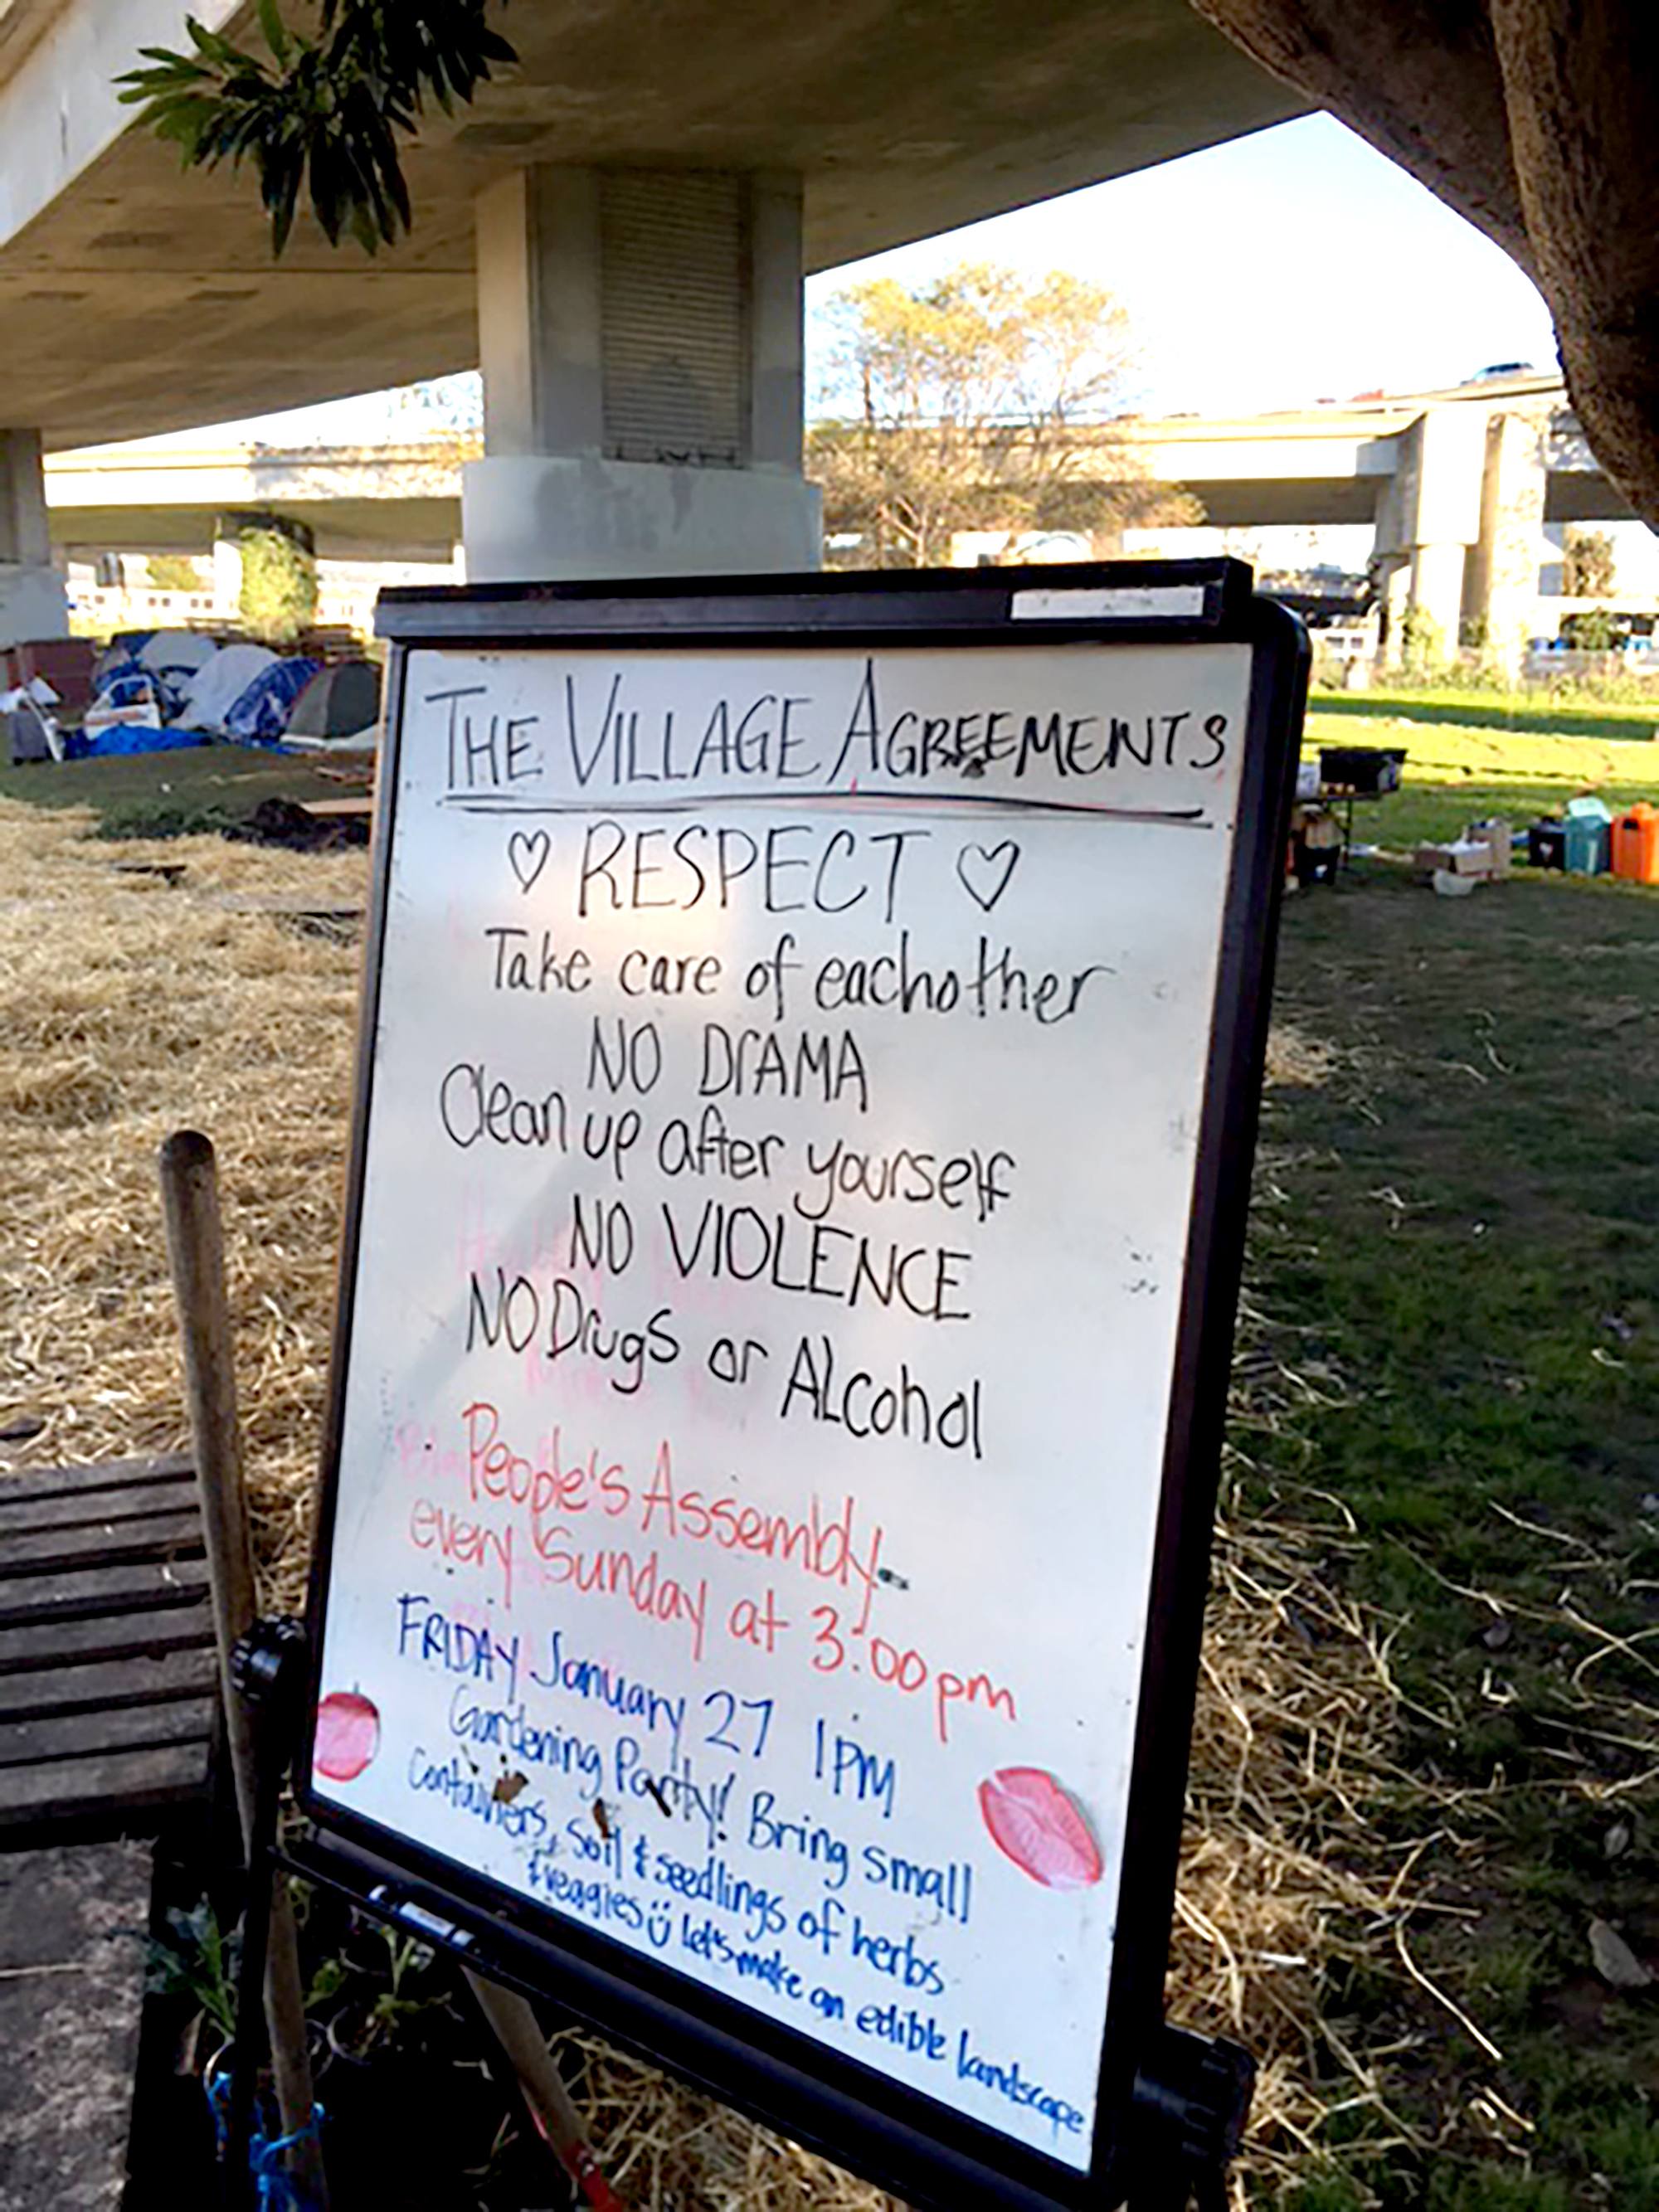 THE VILLAGE AGREEMENTS
♡ RESPECT ♡
Take care of eachother
NO DrAMA
Clean up after yourself
NO VIOLENCE
NO Drugs or ALcohol
People's Assembly-
every Sunday at 3:00pm
FRIDAY January 27 1PM
Gardening Party! Bring small
Containers, Soil & seedlings of herbs
& veggies ü let's make an edible landscape